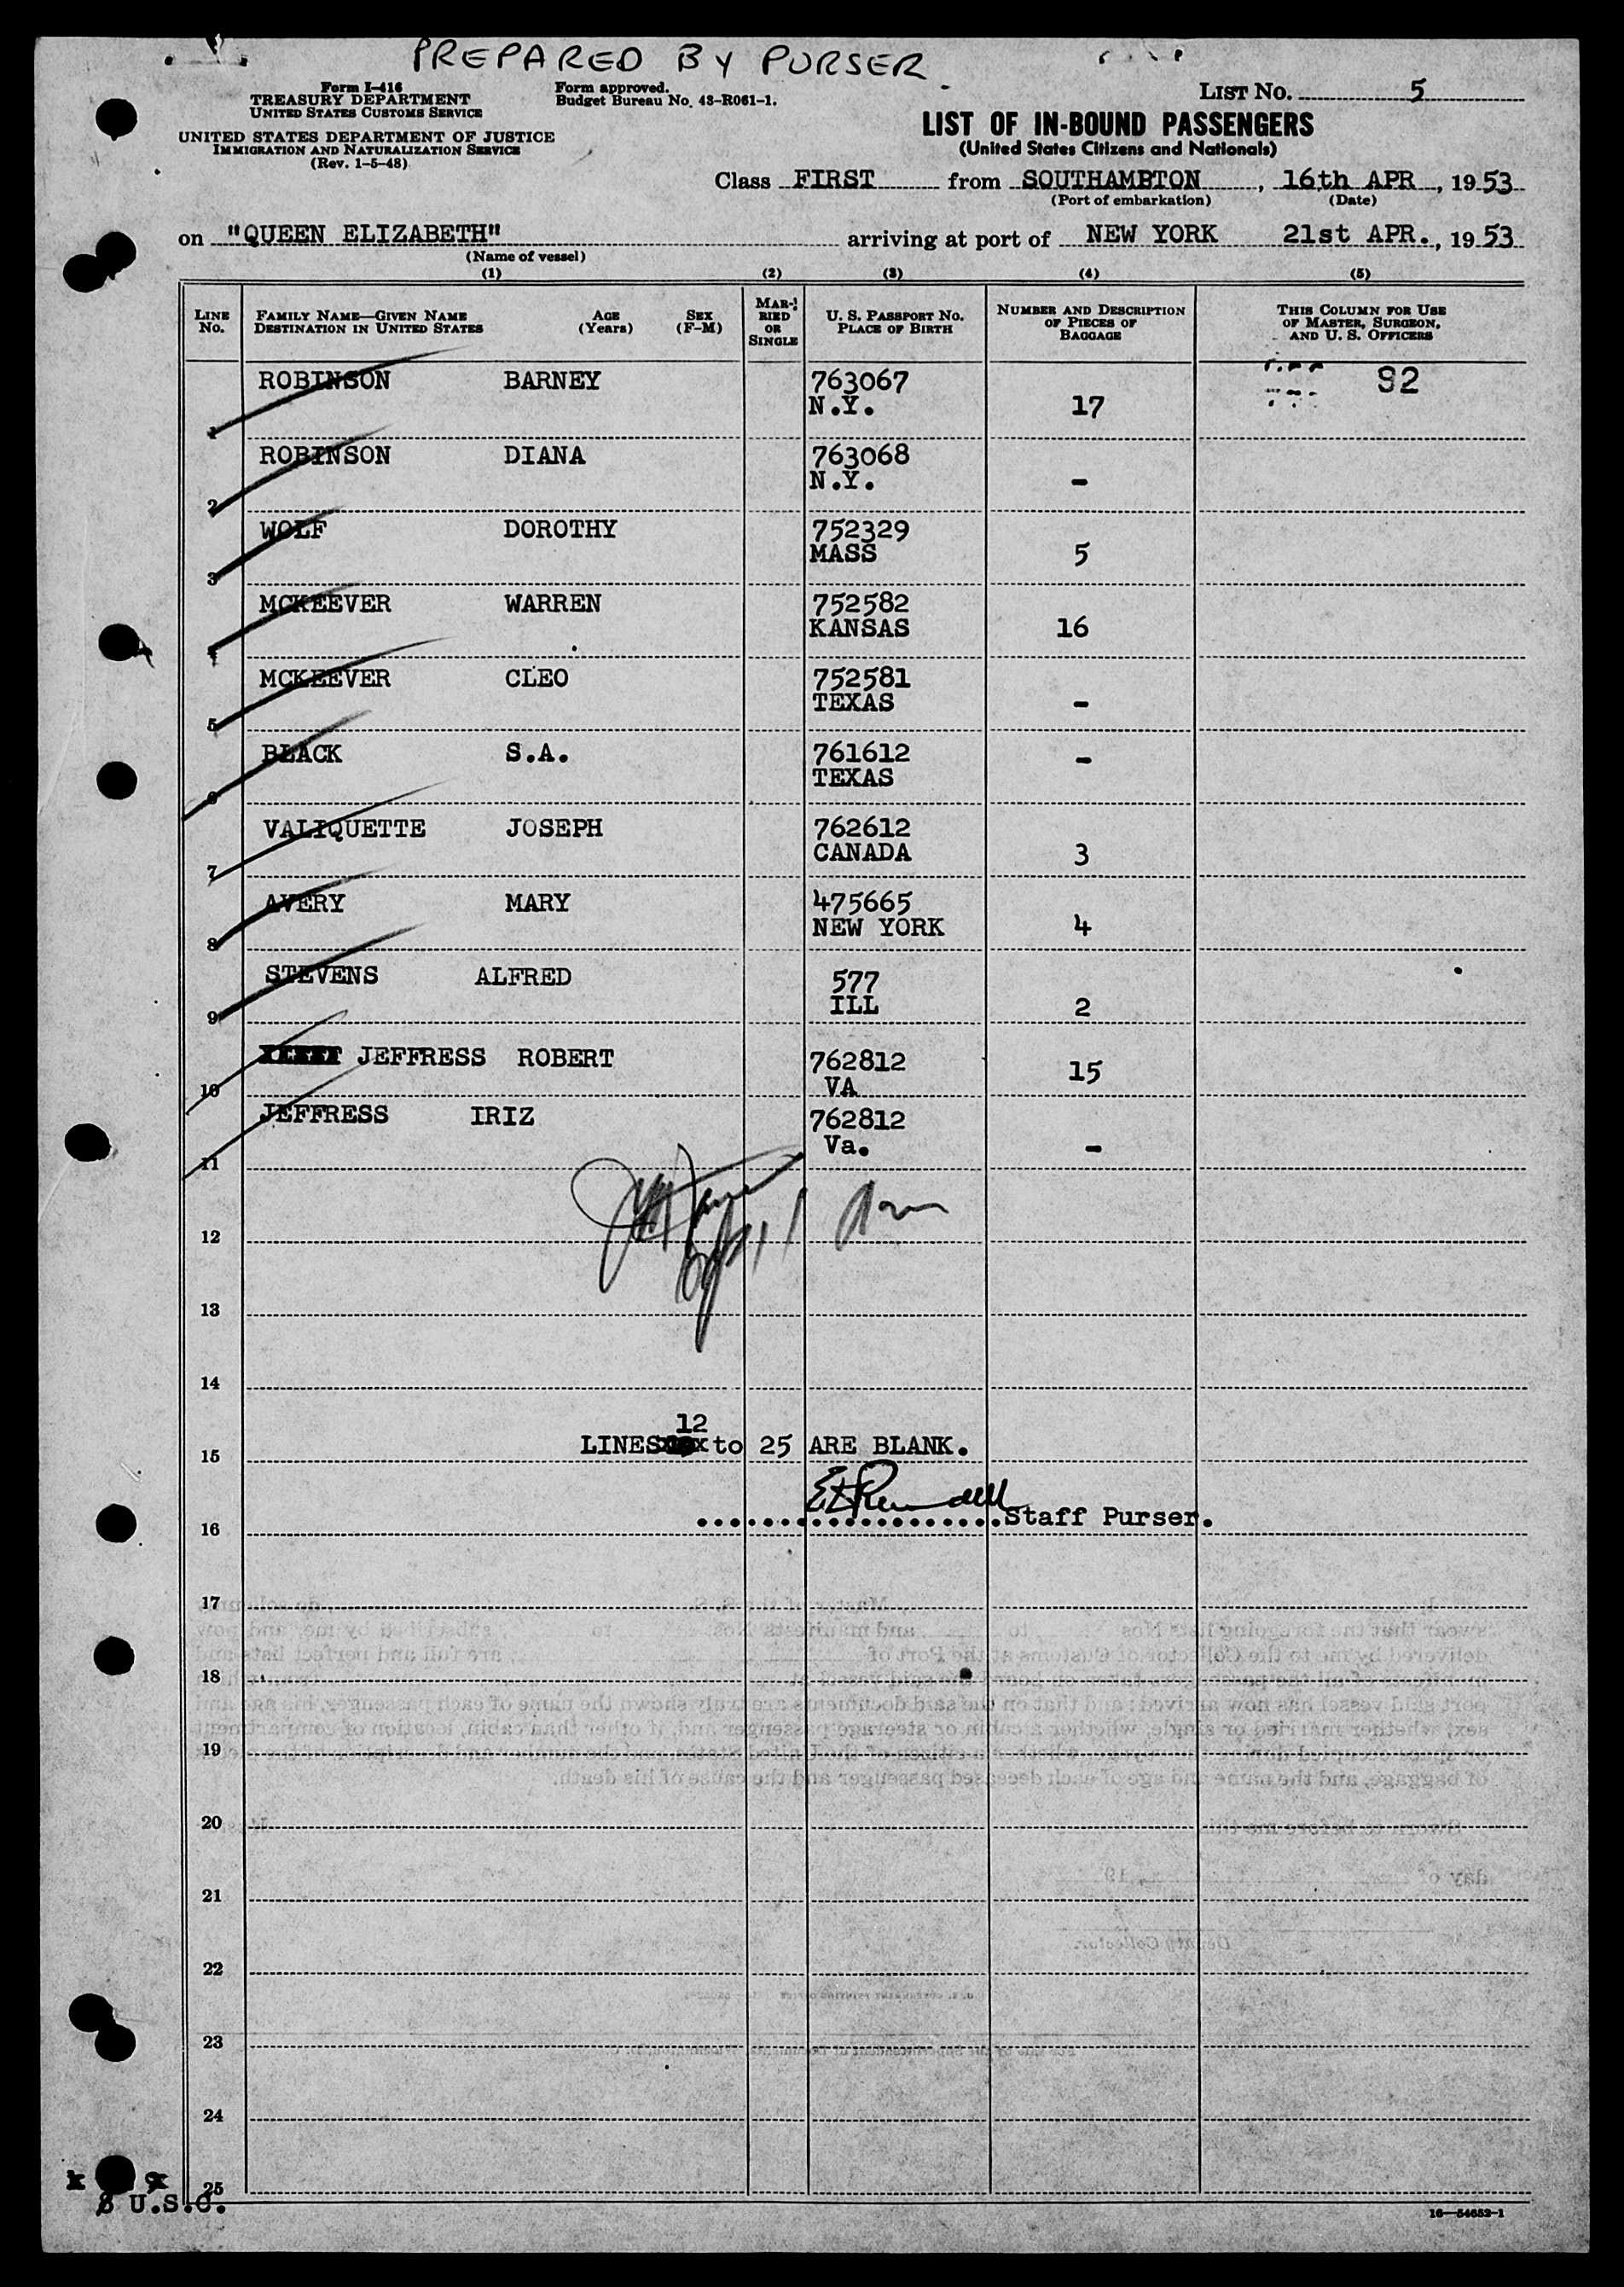 PREPARED BY PURSER
Form I-416
TREASURY DEPARTMENT
UNITED STATES CUSTOMS SERVICE
UNITED STATES DEPARTMENT OF JUSTICE
IMMIGRATION AND NATURALIZATION SERVICE
(Rev. 1-5-48)
Form approved.
Budget Bureau No. 43-R061-1.
LIST NO. 5
LIST OF IN-BOUND PASSENGERS
(United States Citizens and Nationals)
Class FIRST from SOUTHAMPTON, 16th APR, 1953
(Port of embarkation) (Date)
on "QUEEN ELIZABETH" arriving at port of NEW YORK 21st APR., 1953
(Name of vessel)
(1) (2) (3) (4) (5)
LINE NO. FAMILY NAME—GIVEN NAME DESTINATION IN UNITED STATES AGE (Years) SEX (F-M) MARRIED OR SINGLE U. S. PASSPORT NO. PLACE OF BIRTH NUMBER AND DESCRIPTION OF PIECES OF BAGGAGE THIS COLUMN FOR USE OF MASTER, SURGEON, AND U. S. OFFICERS
ROBINSON BARNEY 763067 92
1 N.Y. 17
ROBINSON DIANA 763068
2 N.Y. -
WOLF DOROTHY 752329
3 MASS 5
MCKEEVER WARREN 752582
4 KANSAS 16
MCKEEVER CLEO 752581
5 TEXAS -
BLACK S.A. 761612 -
6 TEXAS
VALIQUETTE JOSEPH 762612
7 CANADA 3
AVERY MARY 475665
8 NEW YORK 4
STEVENS ALFRED 577
9 ILL 2
JEFFRESS ROBERT 762812 15
10 VA
JEFFRESS IRIZ 762812
11 Va. -
12
13
14
12
LINES to 25 ARE BLANK.
15
Staff Purser.
16
17
18
19
20
21
22
23
24
25
8 U.S.C.
16—54652-1